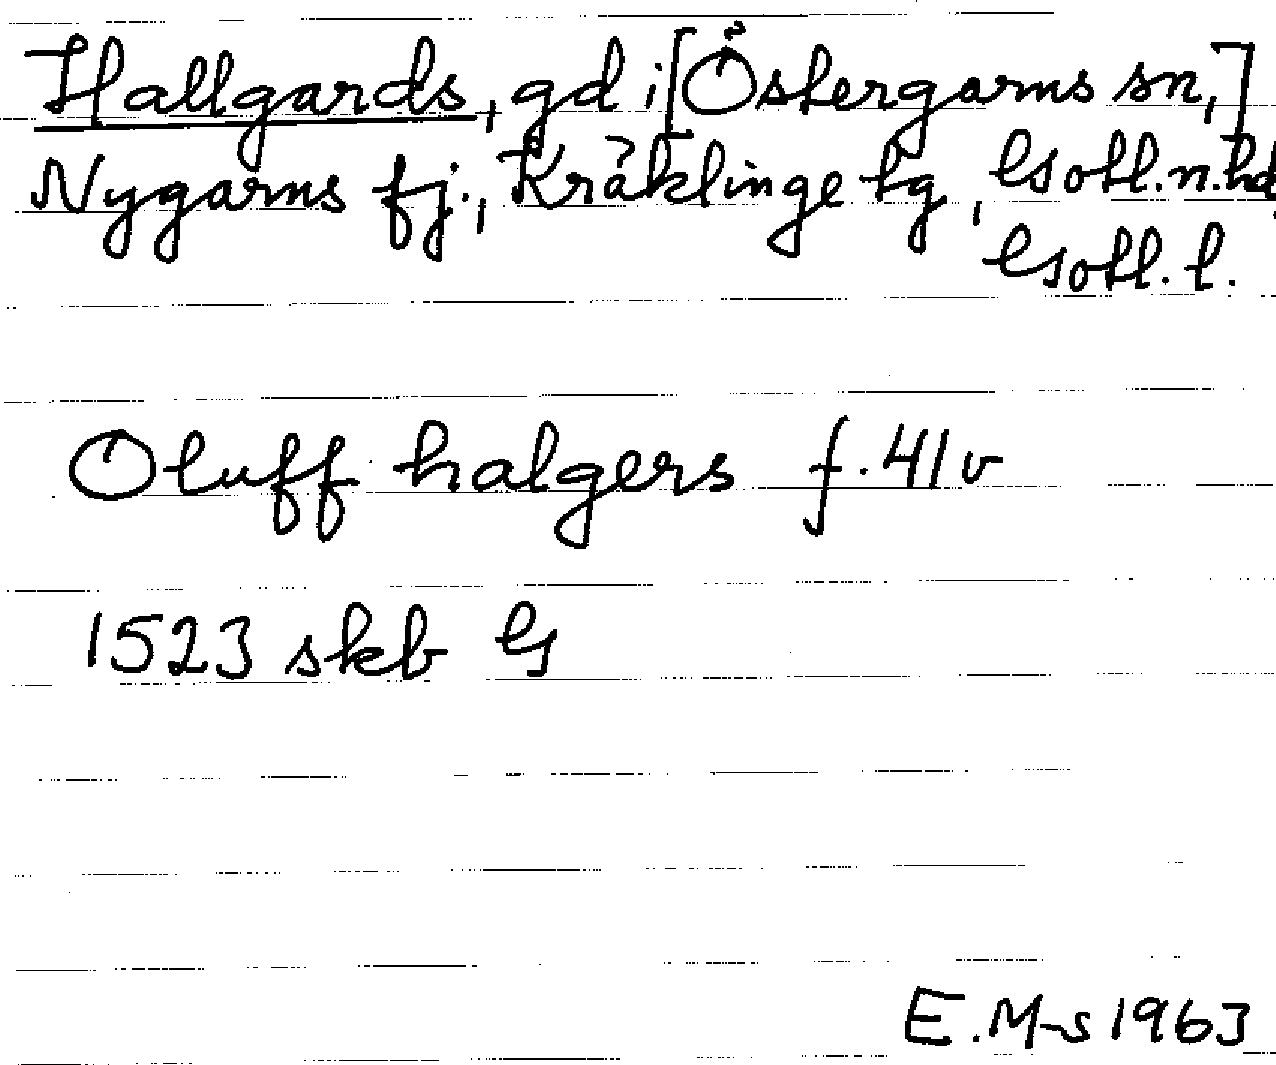 Hallgards, gd i [Östergarns sn,]
Nygarns fj., Kräklinge tg, Gotl.n.hd,
Gotl. l.
Oluff halgers f. 41 v
1523 skb G
E.M-s 1963